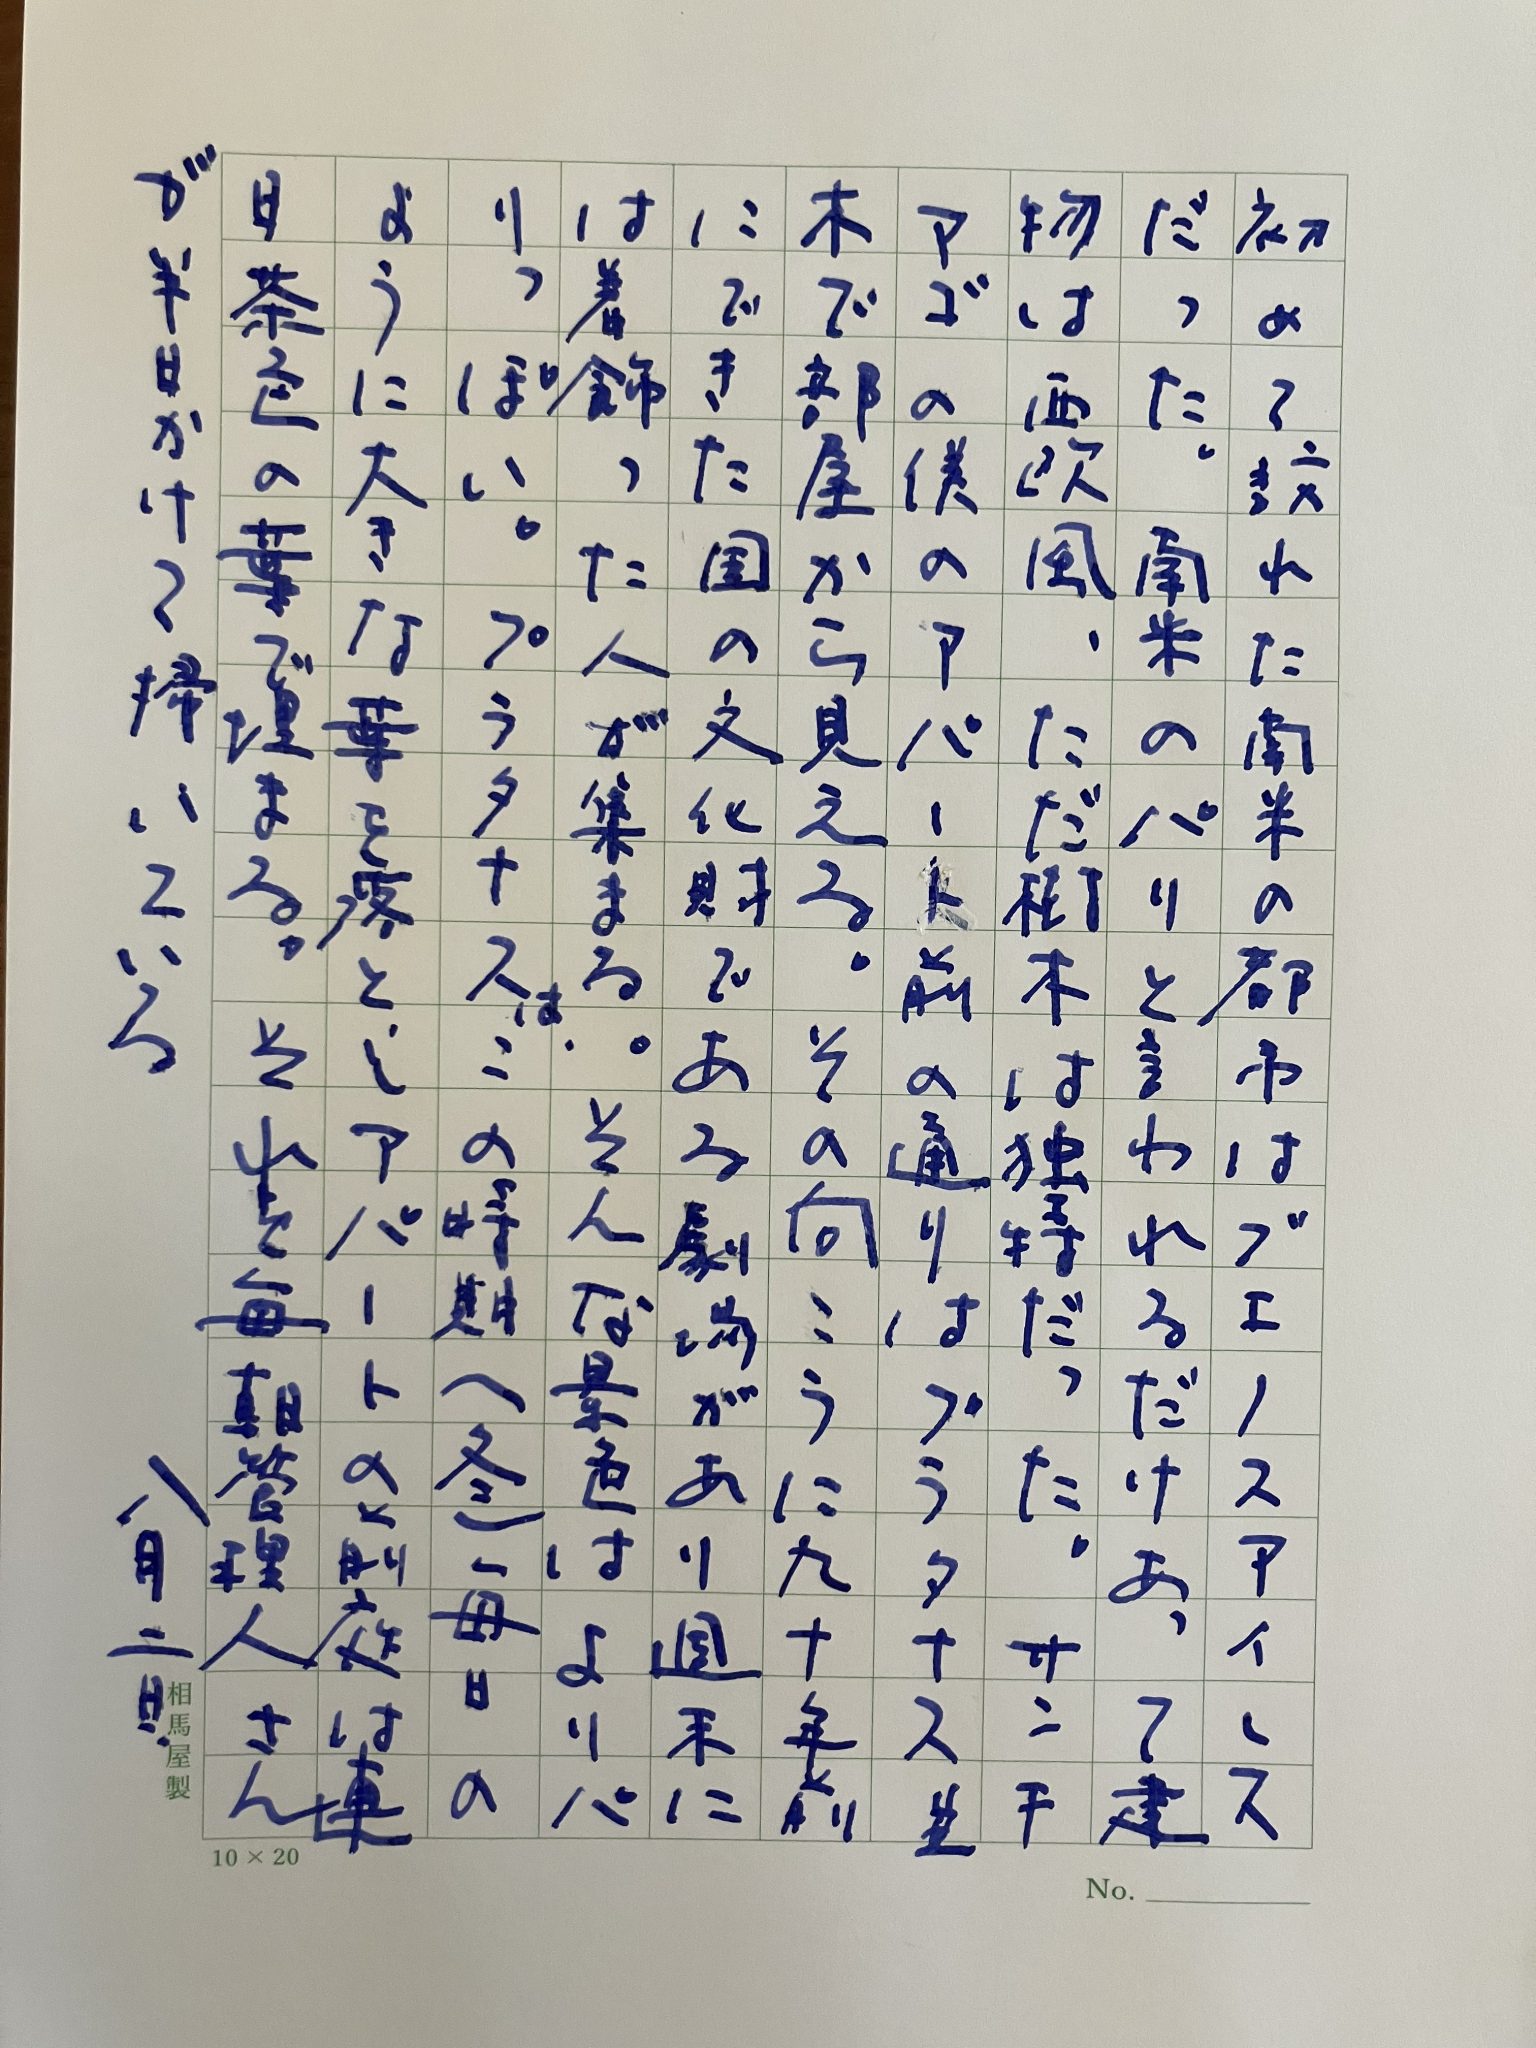 初めて訪れた南米の都市はブエノスアイレス
だった。南米のパリと言われるだけあって建
物は西欧風、ただ樹木は独特だった。サンテ
アゴの僕のアパート前の通りはプラタナス並
木で部屋から見える。その向こうに九十年前
にできた国の文化財である劇場があり週末に
は着飾った人が集まる。そんな景色はよりパ
リっぽい。プラタナスはこの時期(冬)毎日の
ように大きな葉を落としアパートの前庭は連
日茶色の葉で埋まる。それを毎朝管理人さん
が半日かけて掃いている
八月二日.
相馬屋製
10×20
No.